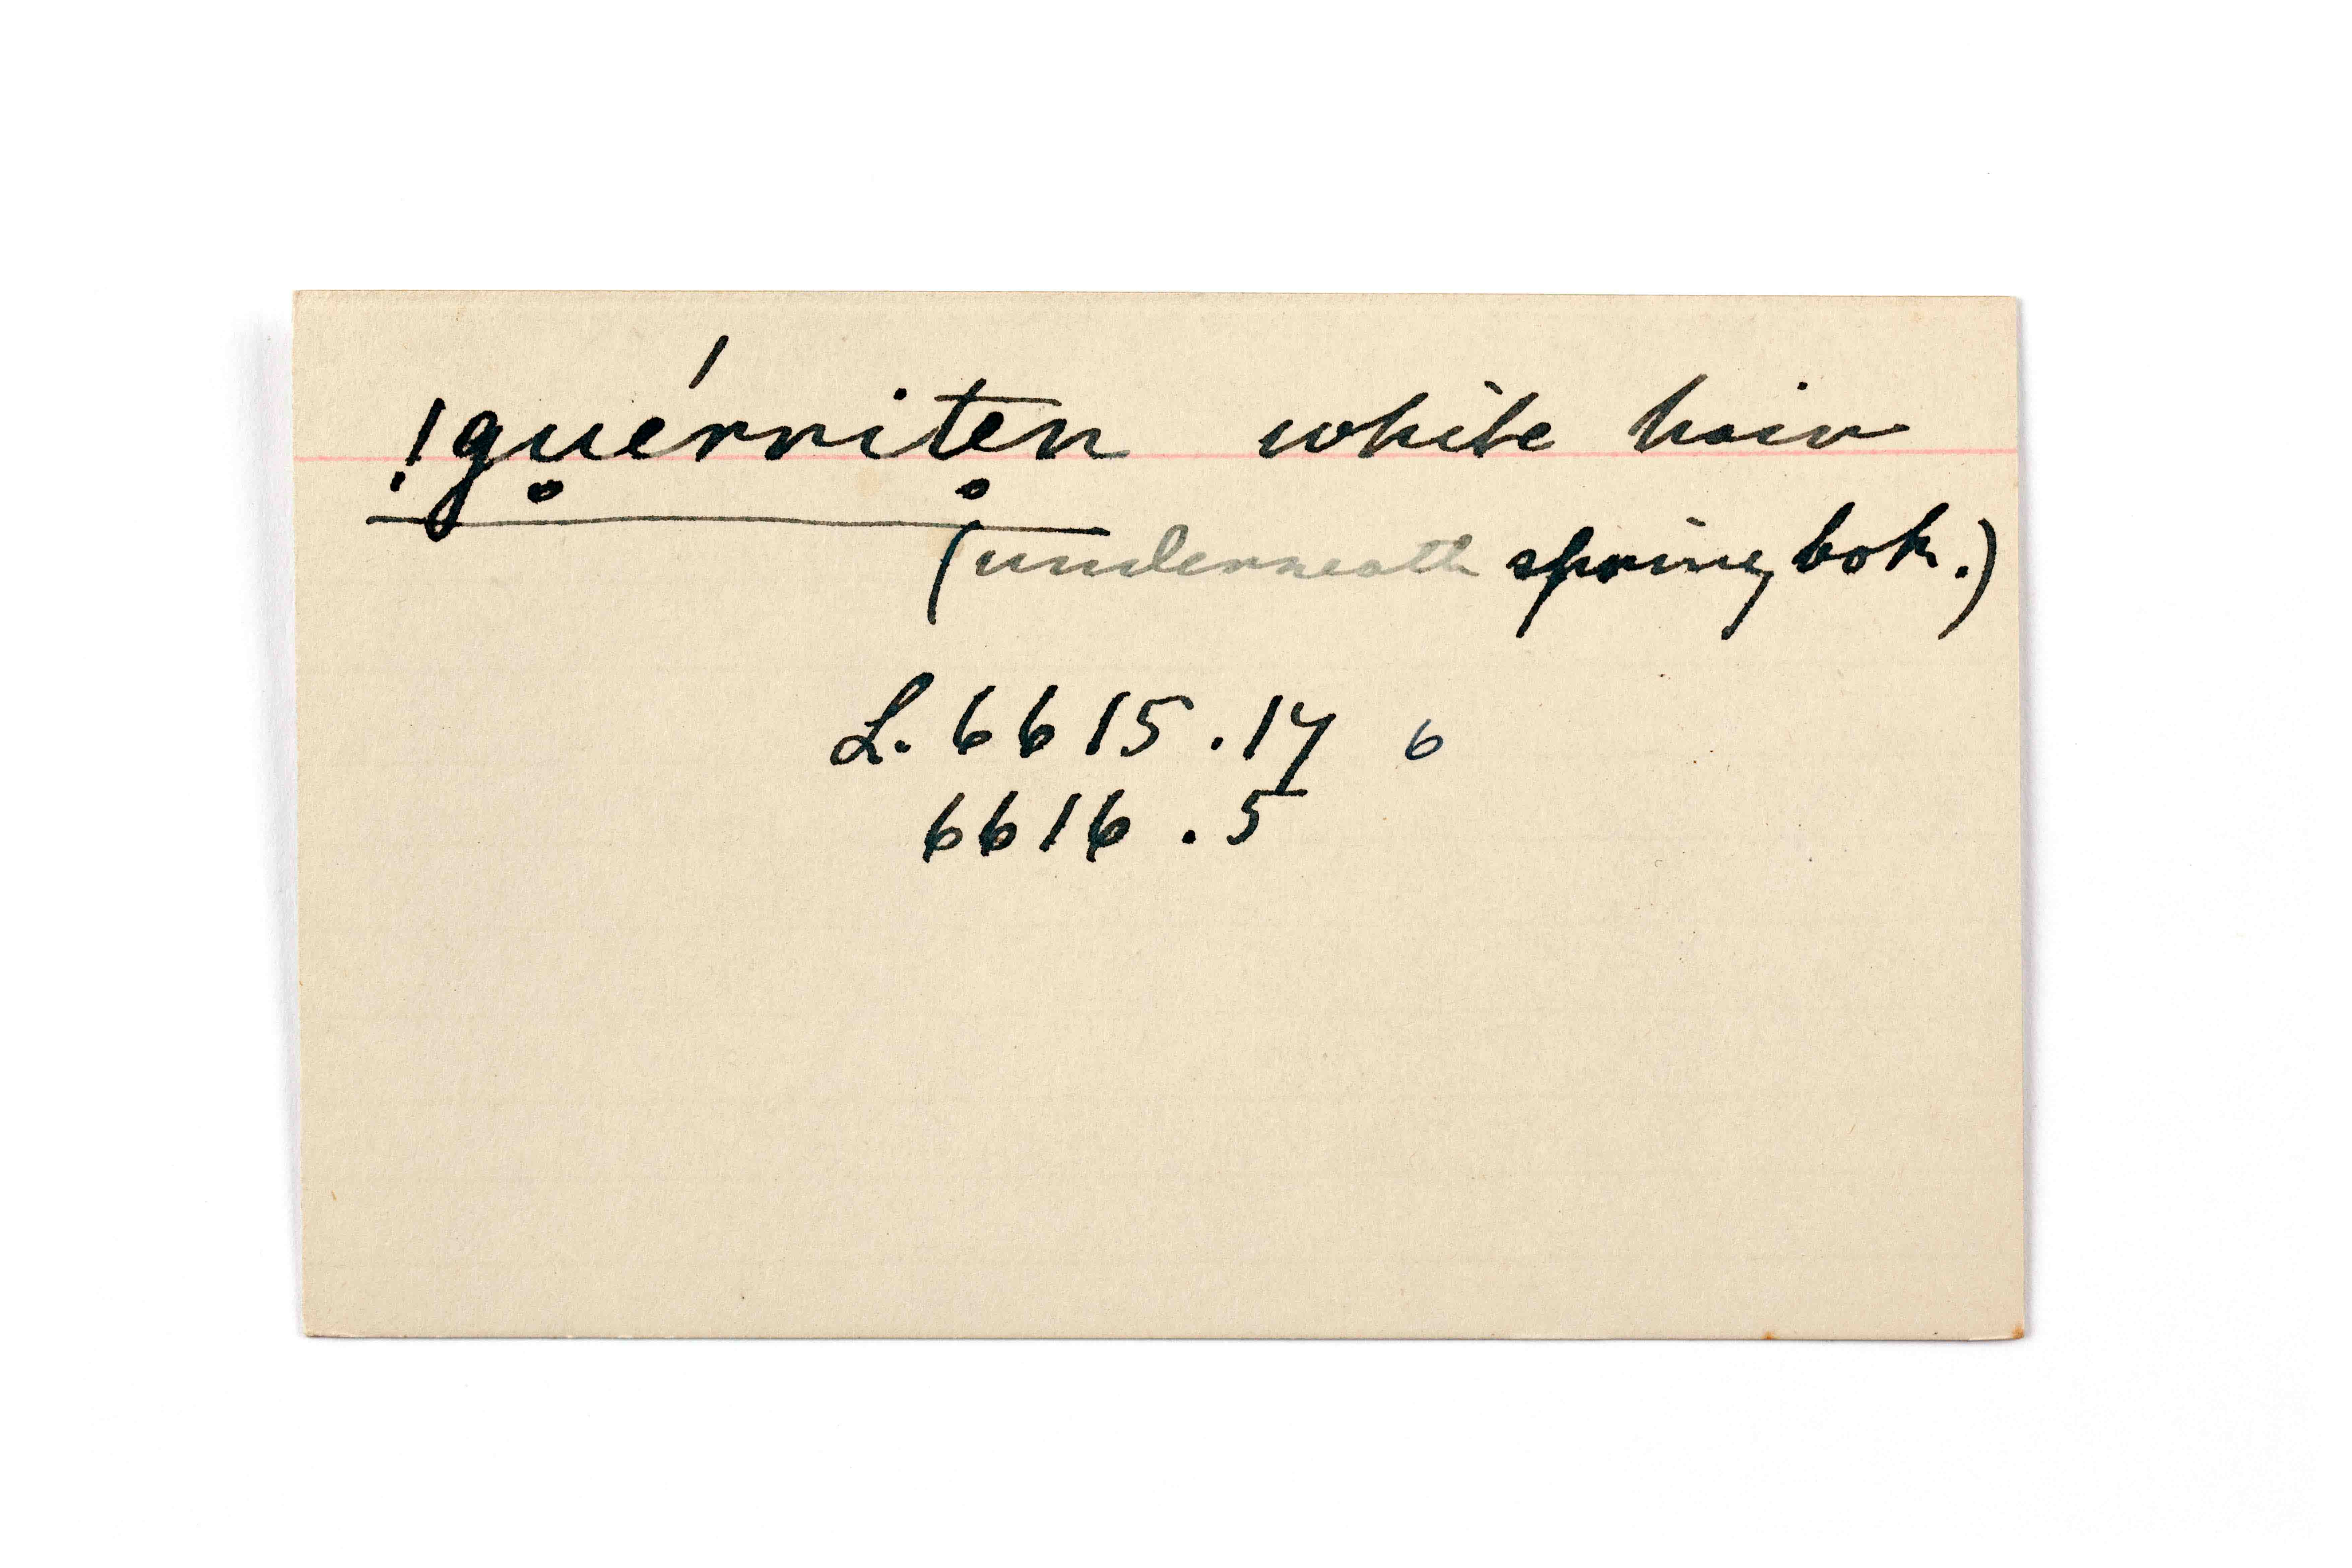 !gu̥érrite̥n white hair
(underneath springbok.)
L. 6615.17 6
6616.5